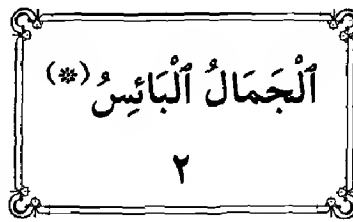 ٱلْجَمَالُ ٱلْبَائِسُ (*)
٢